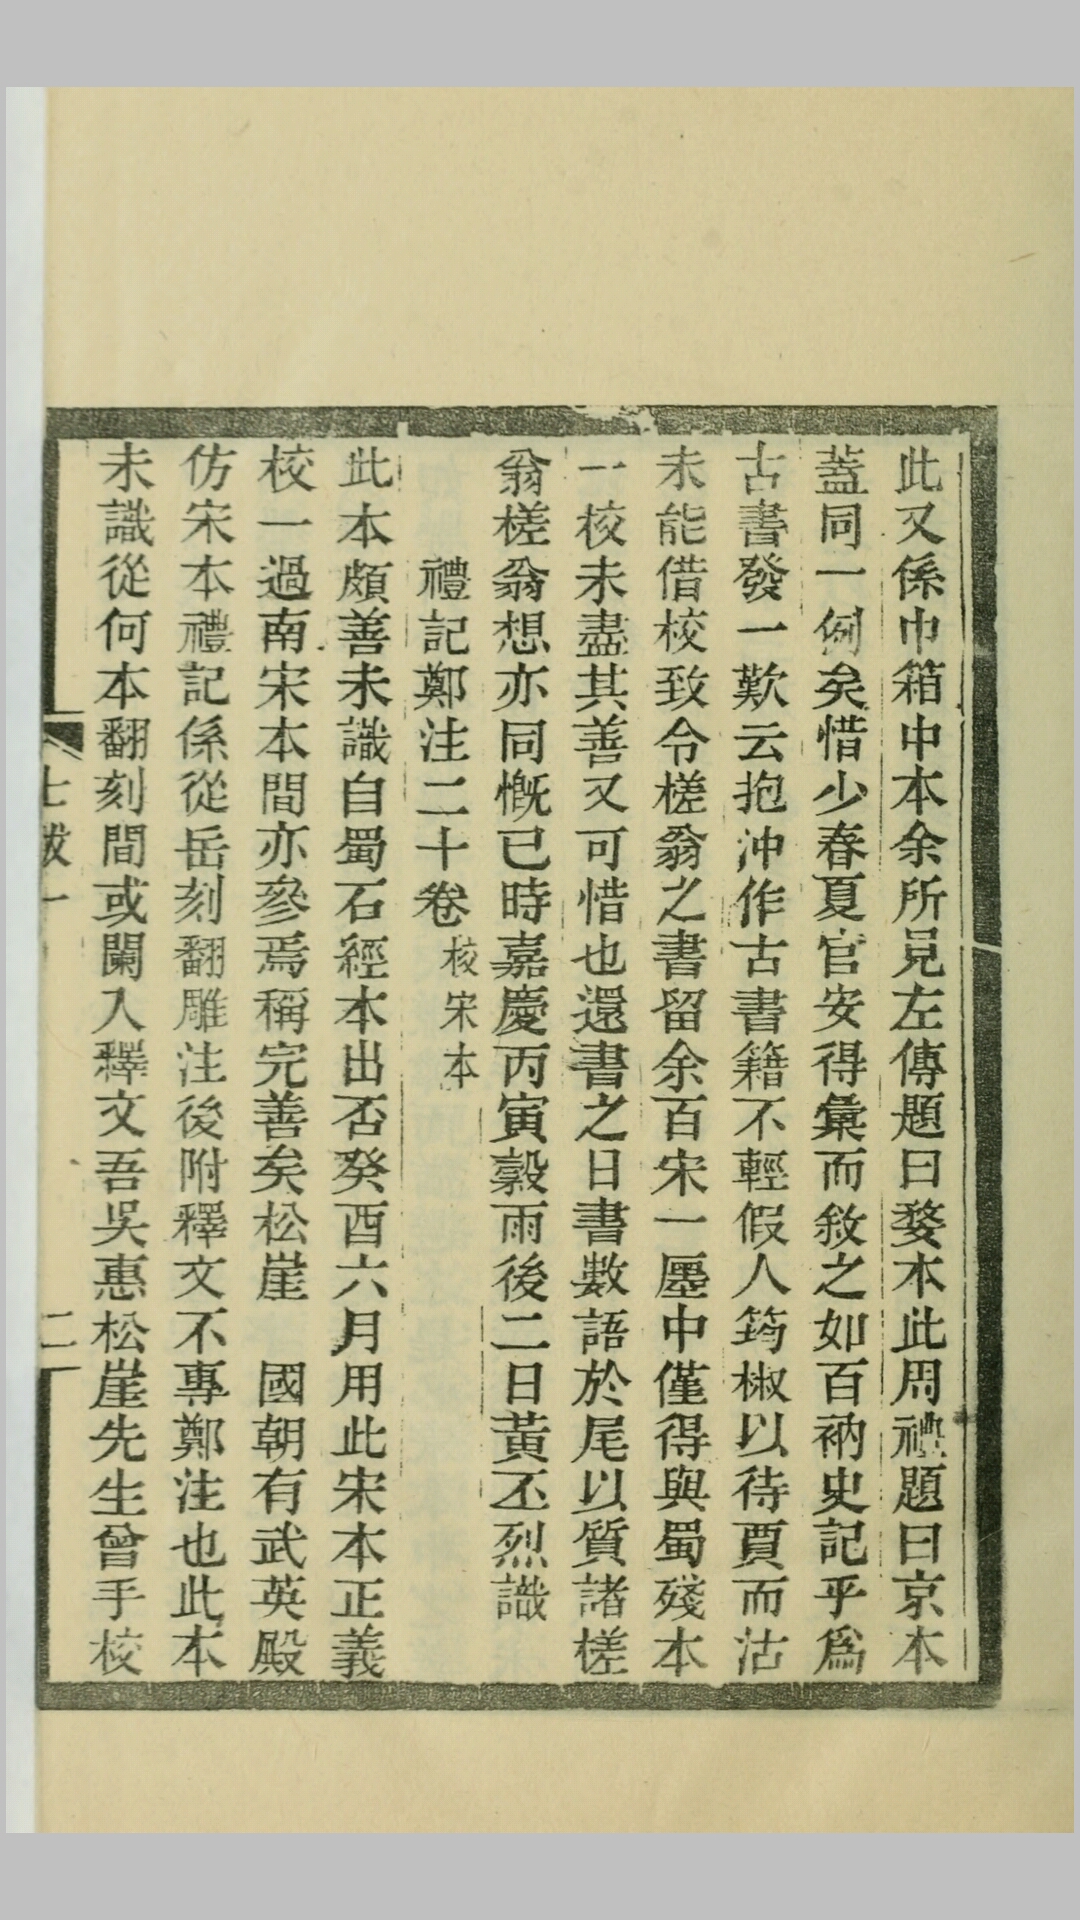 此又係巾箱中本余所見左傳題曰婺本此周禮題曰京本
蓋同一例矣惜少春夏官安得彙而敘之如百衲史記乎為
古書發一歎云抱沖作古書籍不輕假人筠椒以待賈而沽
未能借校致令槎翁之書留余百宋一廛中僅得與蜀殘本
一校未盡其善又可惜也還書之日書數語於尾以質諸槎
翁槎翁想亦同慨已時嘉慶丙寅穀雨後二日黃丕烈識
禮記鄭注二十卷 校宋本
此本頗善未識自蜀石經本出否癸酉六月用此宋本正義
校一過南宋本間亦參焉稱完善矣松崖　國朝有武英殿
仿宋本禮記係從岳刻翻雕注後附釋文不專鄭注也此本
未識從何本翻刻間或闌入釋文吾吳惠松崖先生曾手校
士
跋一
二